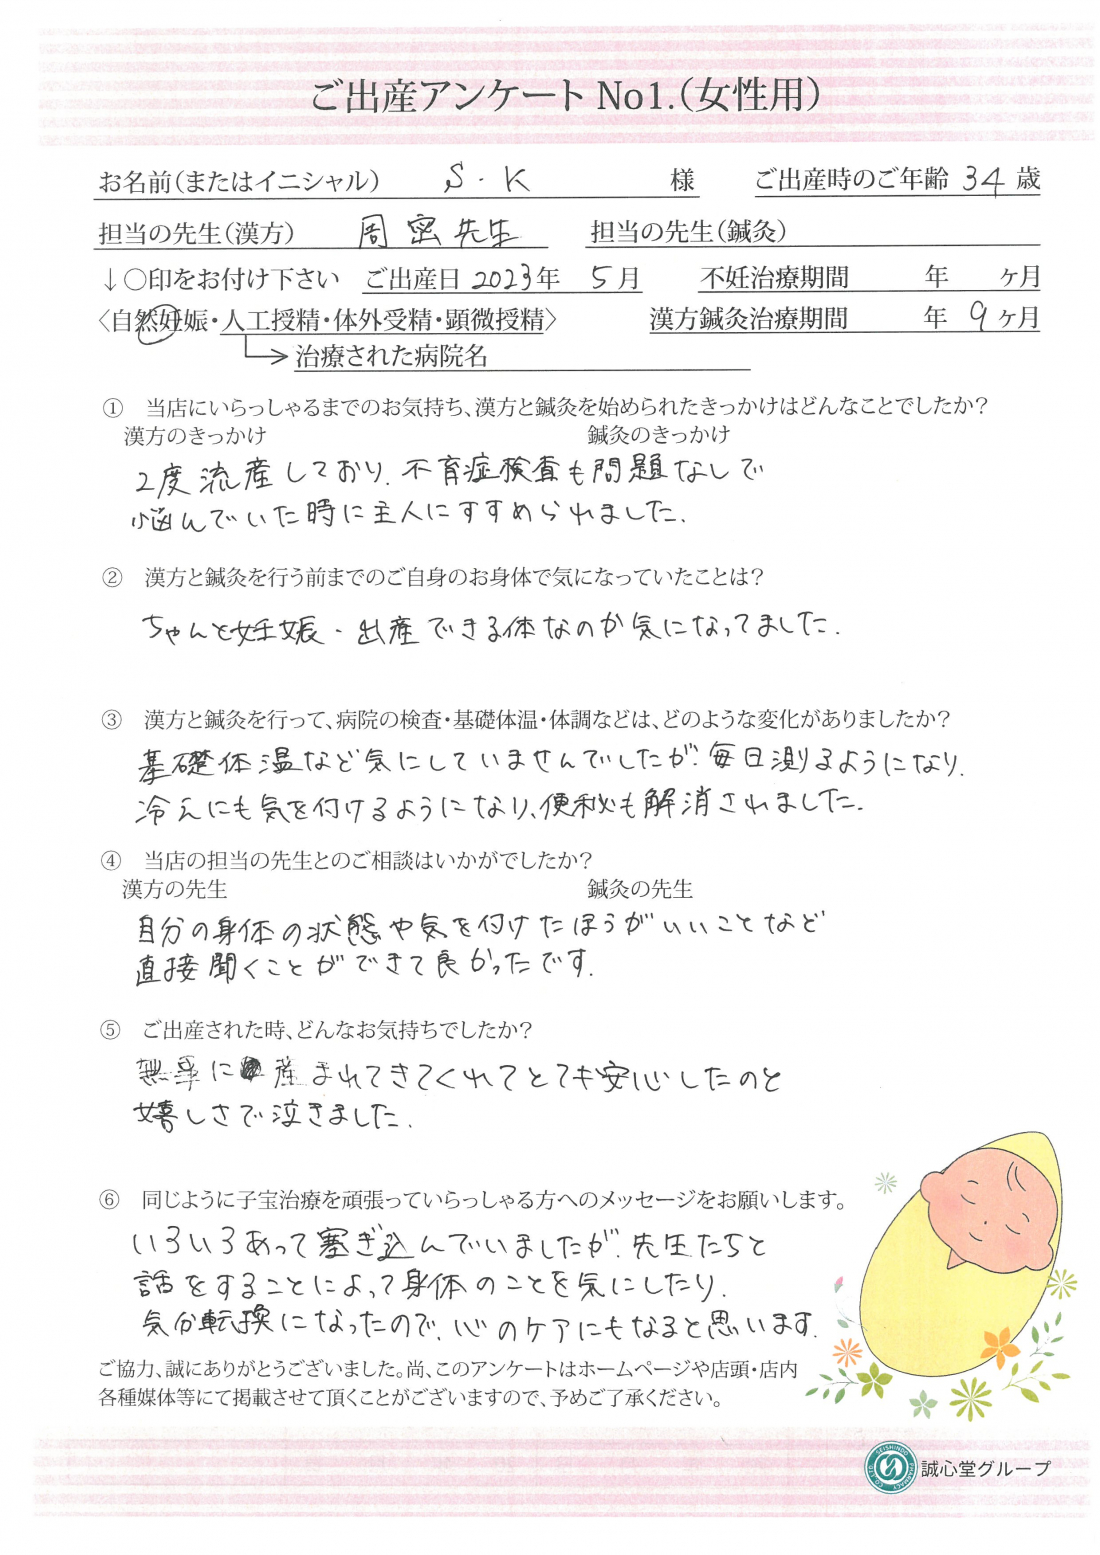 ご出産アンケート No1.(女性用)
お名前(またはイニシャル) S・K 様 ご出産時のご年齢 34 歳
担当の先生(漢方) 周 密 先生 担当の先生(鍼灸)
↓○印をお付け下さい ご出産日 2023年 5月 不妊治療期間 年 ヶ月
〈自然妊娠・人工授精・体外受精・顕微授精〉 漢方鍼灸治療期間 年 9ヶ月
治療された病院名
① 当店にいらっしゃるまでのお気持ち、漢方と鍼灸を始められたきっかけはどんなことでしたか?
漢方のきっかけ 鍼灸のきっかけ
2度流産しており、不育症検査も問題なしで
悩んでいた時に主人にすすめられました。
② 漢方と鍼灸を行う前までのご自身のお身体で気になっていたことは?
ちゃんと妊娠・出産できる体なのか気になってました。
③ 漢方と鍼灸を行って、病院の検査・基礎体温・体調などは、どのような変化がありましたか?
基礎体温など気にしていませんでしたが、毎日測るようになり、
冷えにも気を付けるようになり、便秘も解消されました。
④ 当店の担当の先生とのご相談はいかがでしたか?
漢方の先生 鍼灸の先生
自分の身体の状態や気を付けたほうがいいことなど
直接聞くことができて良かったです。
⑤ ご出産された時、どんなお気持ちでしたか?
無事に産まれてきてくれてとても安心したのと
嬉しさで泣きました。
⑥ 同じように子宝治療を頑張っていらっしゃる方へのメッセージをお願いします。
いろいろあって塞ぎ込んでいましたが、先生たちと
話をすることによって身体のことを気にしたり、
気分転換になったので、心のケアにもなると思います。
ご協力、誠にありがとうございました。尚、このアンケートはホームページや店頭・店内
各種媒体等にて掲載させて頂くことがございますので、予めご了承ください。
誠心堂グループ